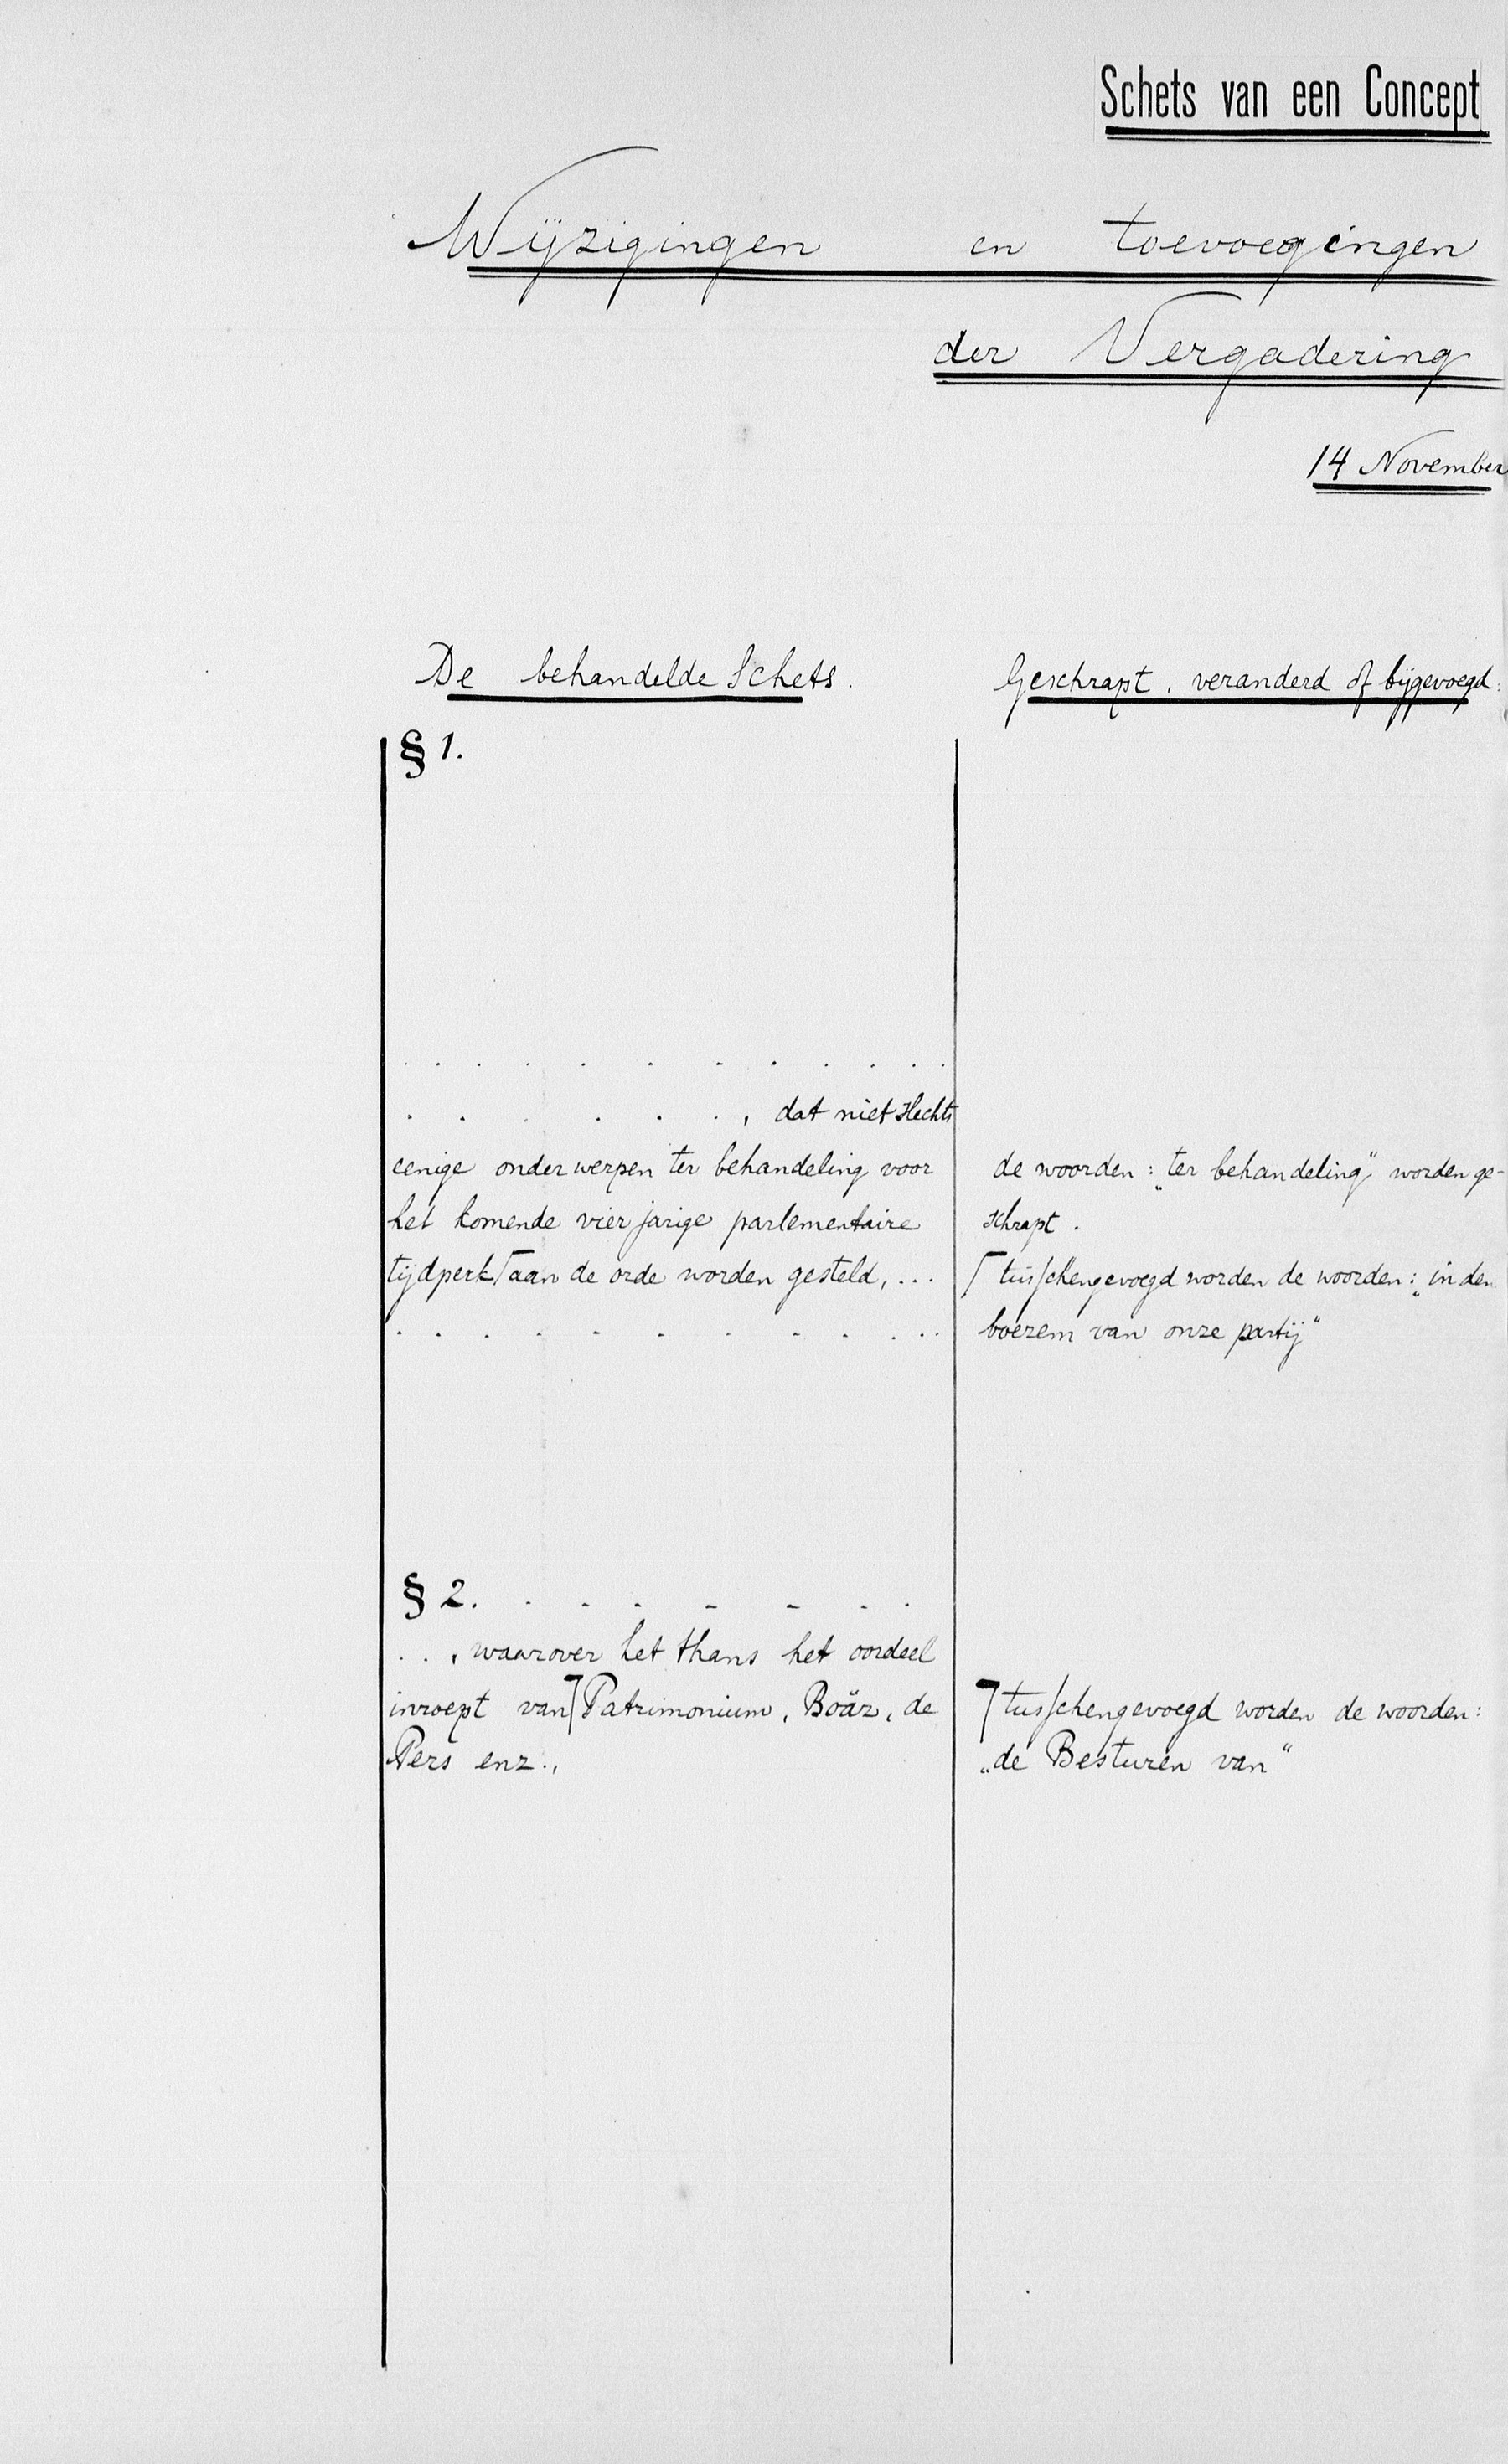 Schets van een Concept
Wijzigingen en toevoegingen
der Vergadering
14 November
De behandelde Schets.
Geschrapt, veranderd of bijgevoegd:
§ 1.
. . . . . . . . . . . .
. . . . . . , dat niet slechts
eenige onderwerpen ter behandeling voor
het komende vierjarige parlementaire
tijdperk ⌈ aan de orde worden gesteld, ...
. . . . . . . . . . . .
de woorden: „ter behandeling" worden ge-
schrapt.
⌈ tusschengevoegd worden de woorden: „in den
boezem van onze partij"
§ 2. . . . . . . .
. . , waarover het thans het oordeel
inroept van ⌉ Patrimonium, Boäz, de
Pers enz.,
⌉ tusschengevoegd worden de woorden:
„de Besturen van"